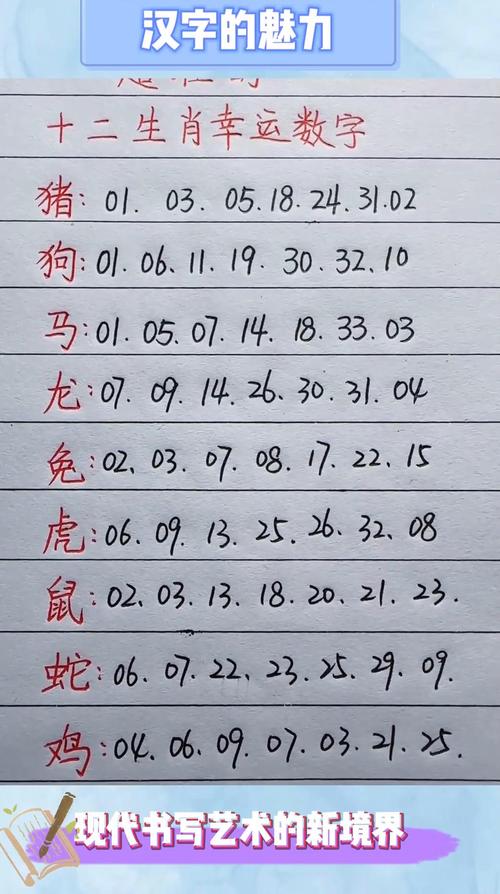 汉字的魅力
十二生肖幸运数字
猪: 01. 03. 05.18.24.31.02
狗:01.06.11.19.30.32.10
马:01.05.07.14.18.33.03
龙:07.09.14.26.30.31.04
兔:02.03.07.08.17.22.15
虎:06.09.13.25.26.32.08
鼠:02.03.13.18.20.21.23.
蛇:06.07.22.23.25.29.09.
鸡:04.06.09.07.03.21.25.
现代书写艺术的新境界